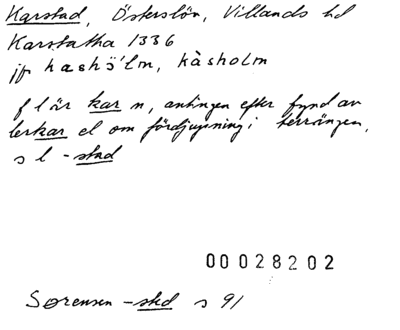 Karstad, Österslöv, Villands hd
Karstatha 1336
jfr kashö'lm, kåsholm
f l är kar n, antingen efter fynd av
lerkar el om fördjupning i terrängen.
s l -stad
00028202
Sørensen -sted s 91